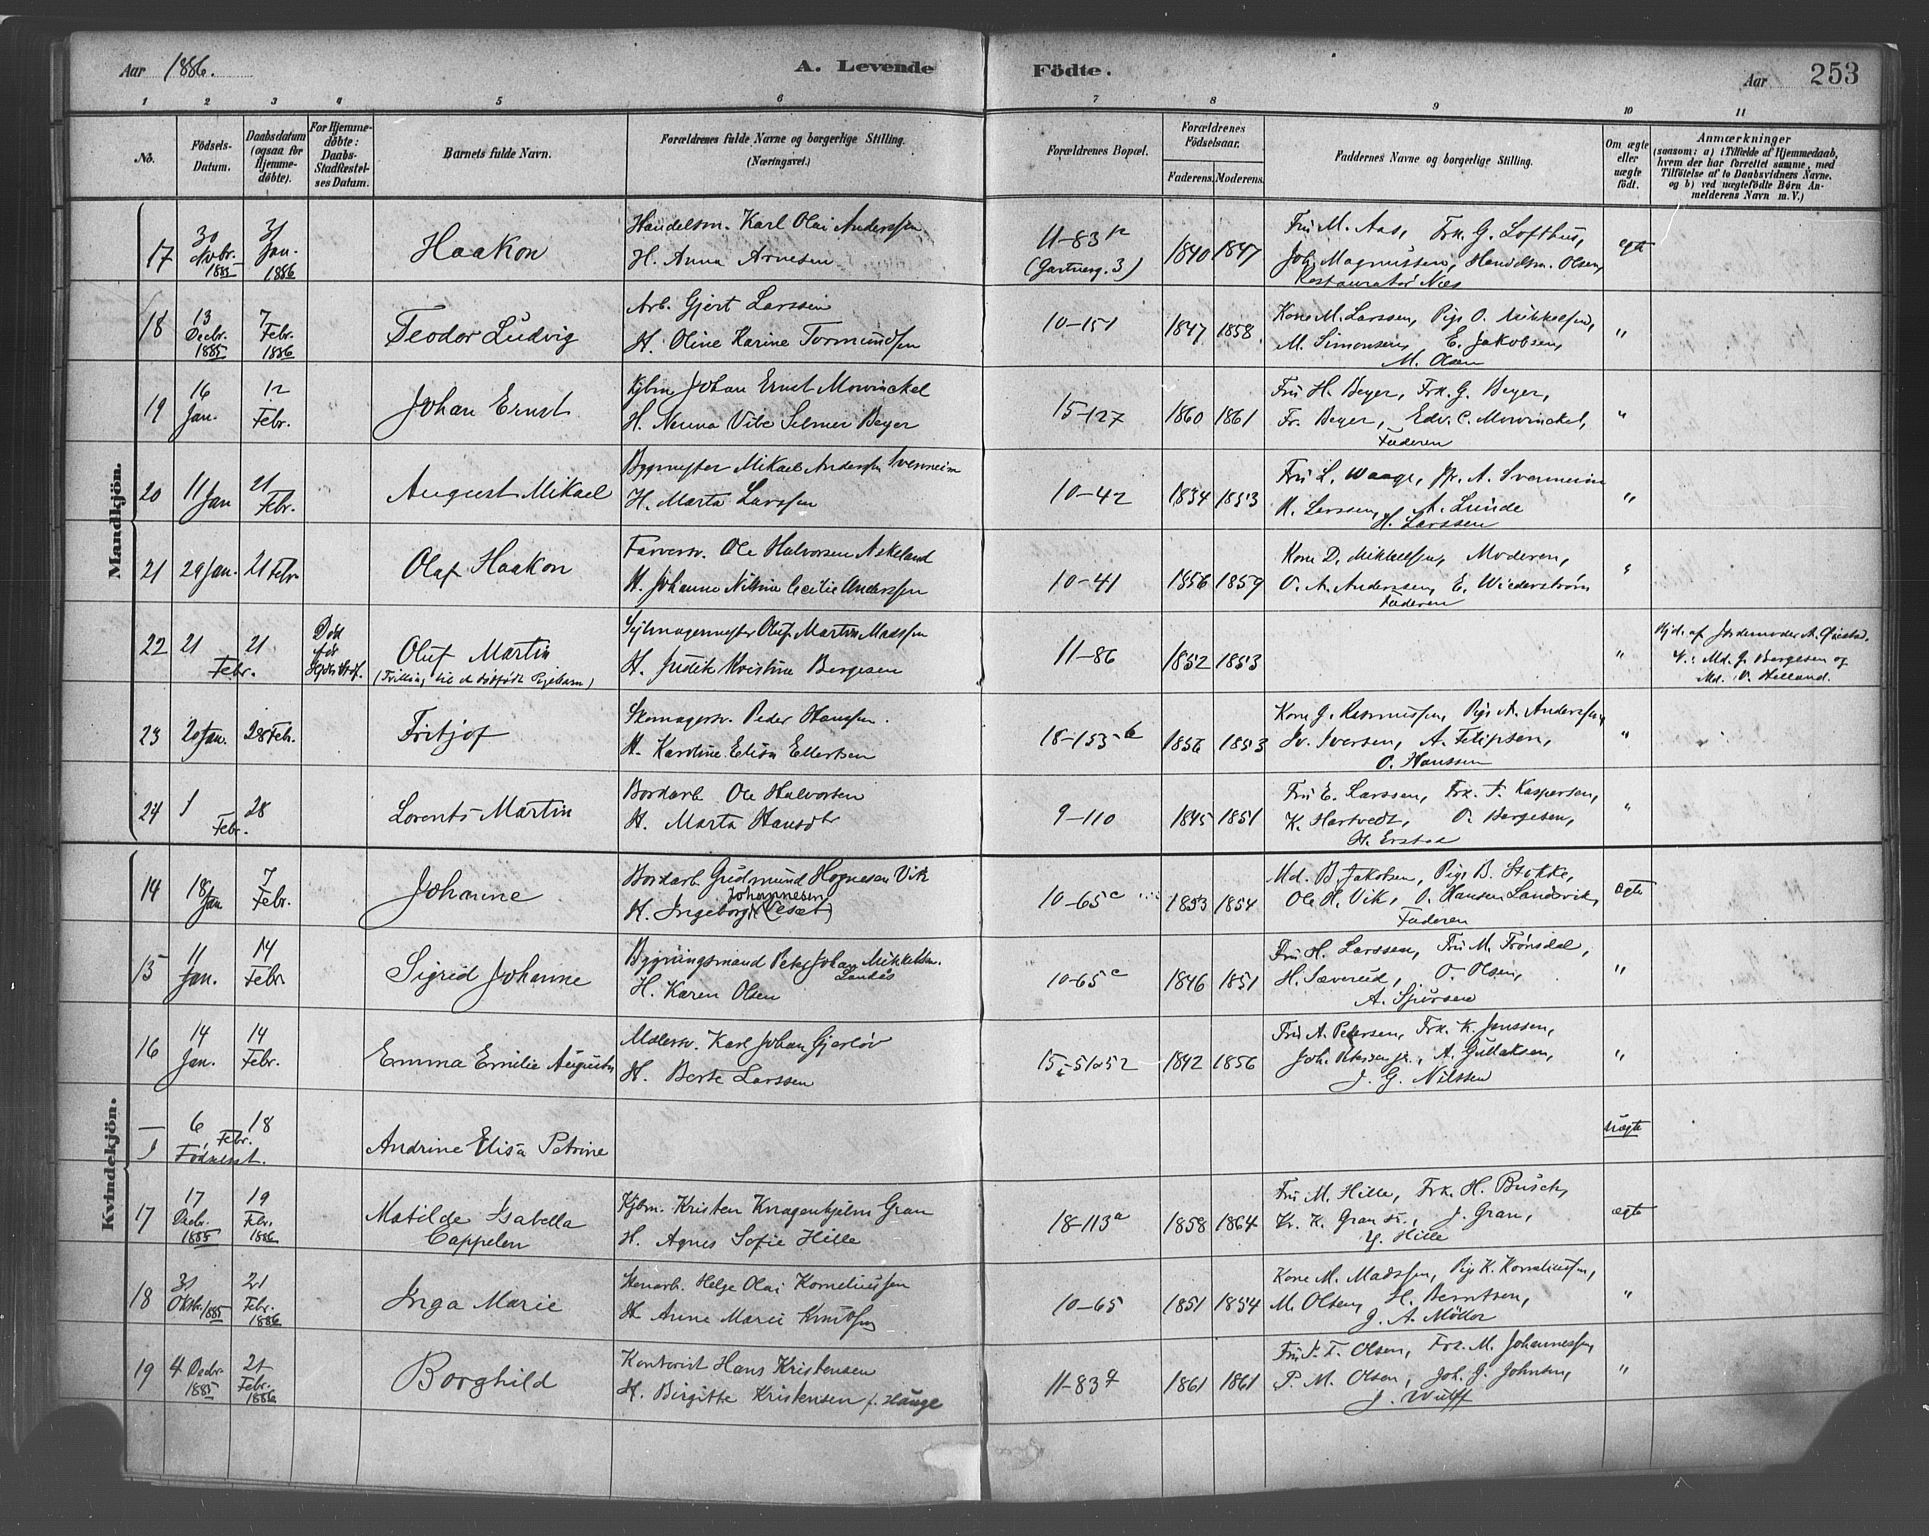 Aar 1886.
A. Levende Födte.
Aar
253
1 2 3 4 5 6 7 8 9 10 11
No.
Födsels-
Datum.
Daabsdatum
(ogsaa for
Hjemme-
döbte).
For Hjemme-
döbte:
Daabs-
Stadfæstel-
ses Datum.
Barnets fulde Navn.
Forældrenes fulde Navne og borgerlige Stilling.
(Næringsvei.)
Forældrenes Bopæl.
Forældrenes
Födselsaar.
Faderens. Moderens.
Faddernes Navne og borgerlige Stilling.
Om ægte
eller
uægte
födt.
Anmærkninger
(saasom: a) i Tilfælde af Hjemmedaab,
hvem der har forrettet samme, med
Tilföielse af to Daabsvidners Navne.
og b) ved uægtefödte Börn An-
melderens Navn m. V.)
Mandkjön.
17
30 Novbr. 1885
31 Jan. 1886
Haakon
Handelsm. Karl Olai Anderssen
H. Anna Arnesen
11-83
(Gartnerg. 3)
1840 1847
Fru M. Aas, Frk. G. Lofthus,
Joh. Magnussen, Handelsm. Olsen,
Restauratør Næs
ægte
18
13 Decbr. 1885
7 Febr. 1886
Teodor Ludvig
Arb. Gjert Larssen
H. Oline Karine Tormundsen
10-151
1847 1858
Kone M. Larssen, Pige O. Mikkelsen,
M. Simonsen, E. Jakobsen,
M. Olsen
"
19
16 Jan.
12 Febr.
Johan Ernst
Kjbm Johan Ernst Mowinckel
H. Nenna Vibe Selmer Beyer
15-127
1860 1861
Fru H. Beyer, Frk. G. Beyer,
Fr. Beyer, Edv. C. Mowinckel,
Faderen
"
20
11 Jan
21 Febr.
August Mikael
Bygmester Mikael Anderssen Svenheim
H. Marta Larssen
10-42
1834 1853
Fru L. Waage, A. Svenheim
K. Larssen, A. Lunde
H. Larssen
"
21
29 Jan.
21 Febr
Olaf Haakon
Farversv. Ole Halvorsen Askeland
H. Johanne Nikoline Cecilie Anderssen
10-41
1856 1859
Kone D. Mikkelsen, Moderen,
O. A. Anderssen, E. Wiederstrøm
Faderen
"
22
21 Febr.
21
Død før
Oluf Martin
(Tvilling til et dødfødt Pigebarn)
Sejlmagermester Oluf Martin Madssen
H. Judik Kristine Bergesen
11-86
1852 1853
"
Hjd. af Jordemoder A.
V.: Md. J. Bergesen og
Md. O. Helland.
23
20 Jan.
28 Febr.
Fritjof
Skomagersv. Peder Hanssen.
H. Karoline Elisa Ellertsen
18-155 b
1856 1853
Kone J. Rasmussen, Pige A. Anderssen,
Iv. Iversen, A. Filipsen,
O. Hanssen
"
24
1 Febr.
28
Lorents Martin
Bordarb Ole Halvorsen
H. Marta Hansdtr
9-110
1845 1851
Fru E. Larssen, Frk. A. Kaspersen,
K. Hartvedt, O. Børgesen,
H. Erstad
"
Kvindekjön.
14
18 Jan
7 Febr.
Johanne
Bordarb Gudmund Hognesen Vik
H. Ingeborg Johannesen
10-65 c
1853 1854
Md. B. Jakobsen, Pige B. Stokke,
Ole H. Vik, O. Hansen Landsvik,
Faderen
ægte
15
11 Jan.
14 Febr
Sigrid Johanne
Bygningsmand Peter Johan Mikkelsen
Landås
H. Karen Olsen
10-65 c
1846 1851
Fru H. Larssen, Fru M. Trønsdal,
H. Sæverud, O. Olsen,
A. Sjursen
"
16
14 Jan.
14 Febr.
Emma Emilie Augusta
Malersv. Karl Johan Gjerløv
H. Berte Larssen
15-51 52
1842 1856
Fru A. Petersen, Frk. K. Janssen,
Joh. Petersen jr., A. Gullaksen,
J. G. Nilssen
"
1
6 Febr.
18
Fødselsst.
Andrine Elisa Petrine
uægte
17
17 Decbr. 1885
19 Febr. 1886
Matilde Isabella
Cappelen
Kjbm. Kristen Knagenhjelm Gran
H. Agnes Sofie Hille
18-113 a
1858 1864
Fru M. Hille, Frk. H. Busch,
Kr. K. Gran sr., J. Gran,
Y. Hille
ægte
18
31 Oktbr. 1885
21 Febr. 1886
Inga Marie
Stenarb. Helge Olai Korneliussen
H Anne Marie Knudsen
10-65
1851 1854
Kone M. Madssen, Pige K. Korneliussen,
M. Olsen, H. Berntsen,
J. A. Möller
"
19
4 Decbr. 1885
21 Febr. 1886
Borghild
Kontorist Hans Kristensen
H. Birgitte Kristensen f. Hauge
11-83
1861 1861
Fru T. Olsen, Frk. M. Johannessen,
P. M. Olsen, Joh. G. Johnsen,
J. Wulff
"